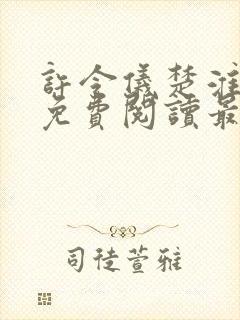 許令儀楚淮
免費閱讀最
司徒萱雅